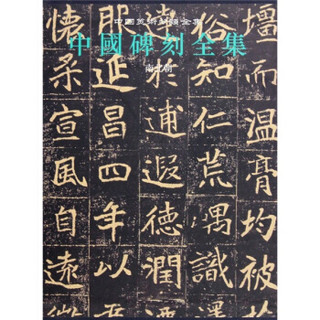 中國美術分類全集
中國碑刻全集
南北朝
壃而温膏均被
俗知仁荒隅識
於逋遐德潤
延昌四年以
懷柔宣風自遠